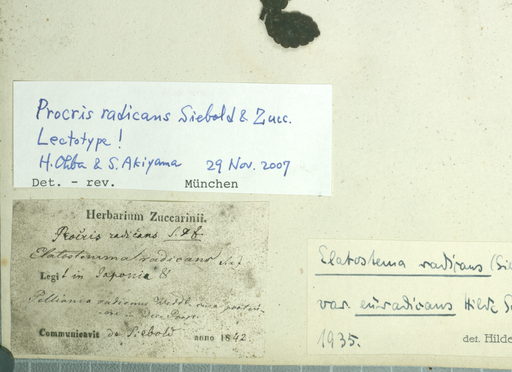 Procris radicans Siebold & Zucc.
Lectotype!
H. Ohba & S. Akiyama 29 Nov. 2007
Det. - rev. München
Herbarium Zuccarinii.
Procris radicans S. & Z.
Elatostemma radicans
Legit in Japonia
Pellionia radicans Wedd.
Communicavit de Siebold anno 1842.
Elatostema radicans (Sie
var. euradicans Hild. S
1935.
det. Hilde